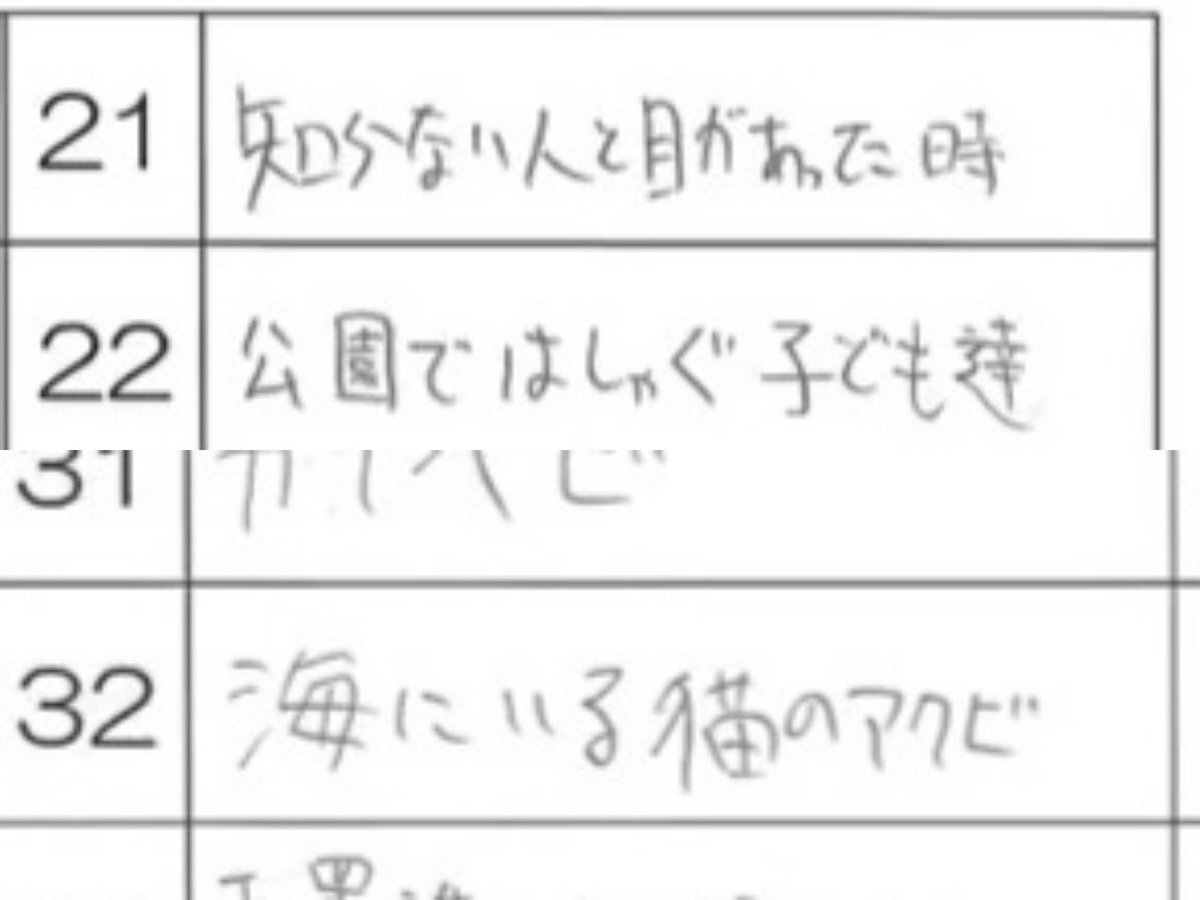 21 知らない人と目があった時
22 公園ではしゃぐ子ども達
31
32 海にいる猫のアクビ